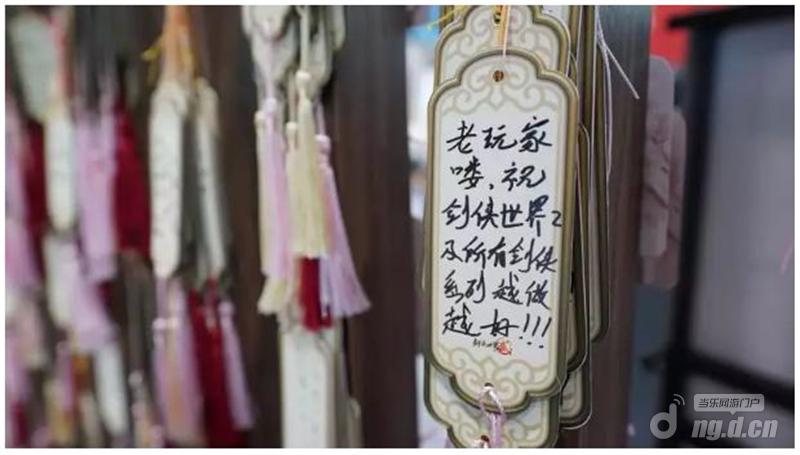 老玩家
喽，祝
剑侠世界2
及所有剑侠
系列越做
越好!!!
当乐网游门户
ng.d.cn